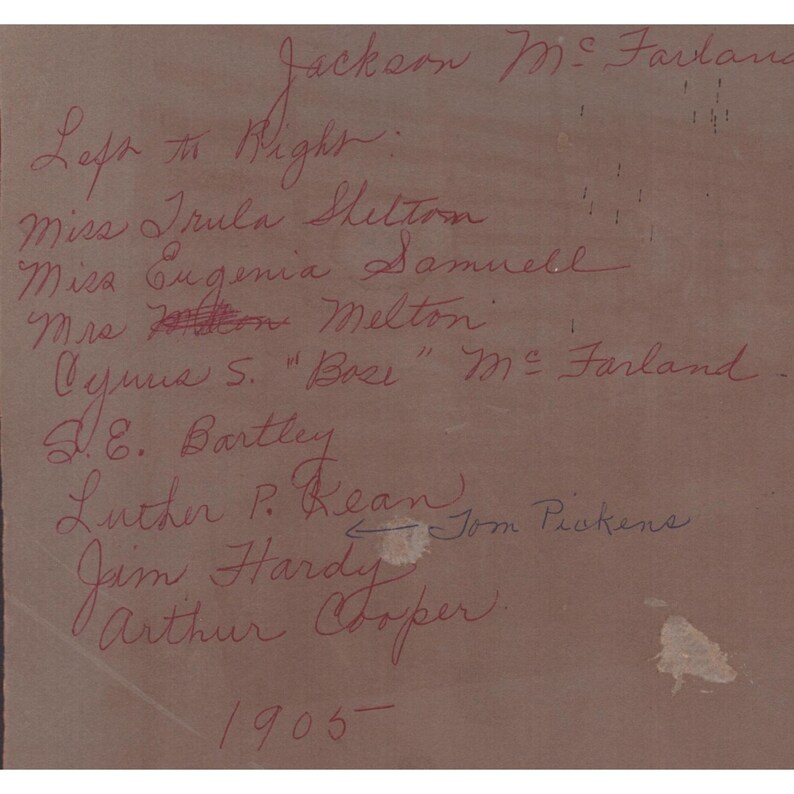 Jackson McFarland
Left to Right:
Miss Trula Shelton
Miss Eugenia Samuell
Mrs Melton
Cyrus S. "Bose" McFarland.
S.E. Bartley
Luther P. Kean
← Tom Pickens
Jim Hardy
Arthur Cooper
1905